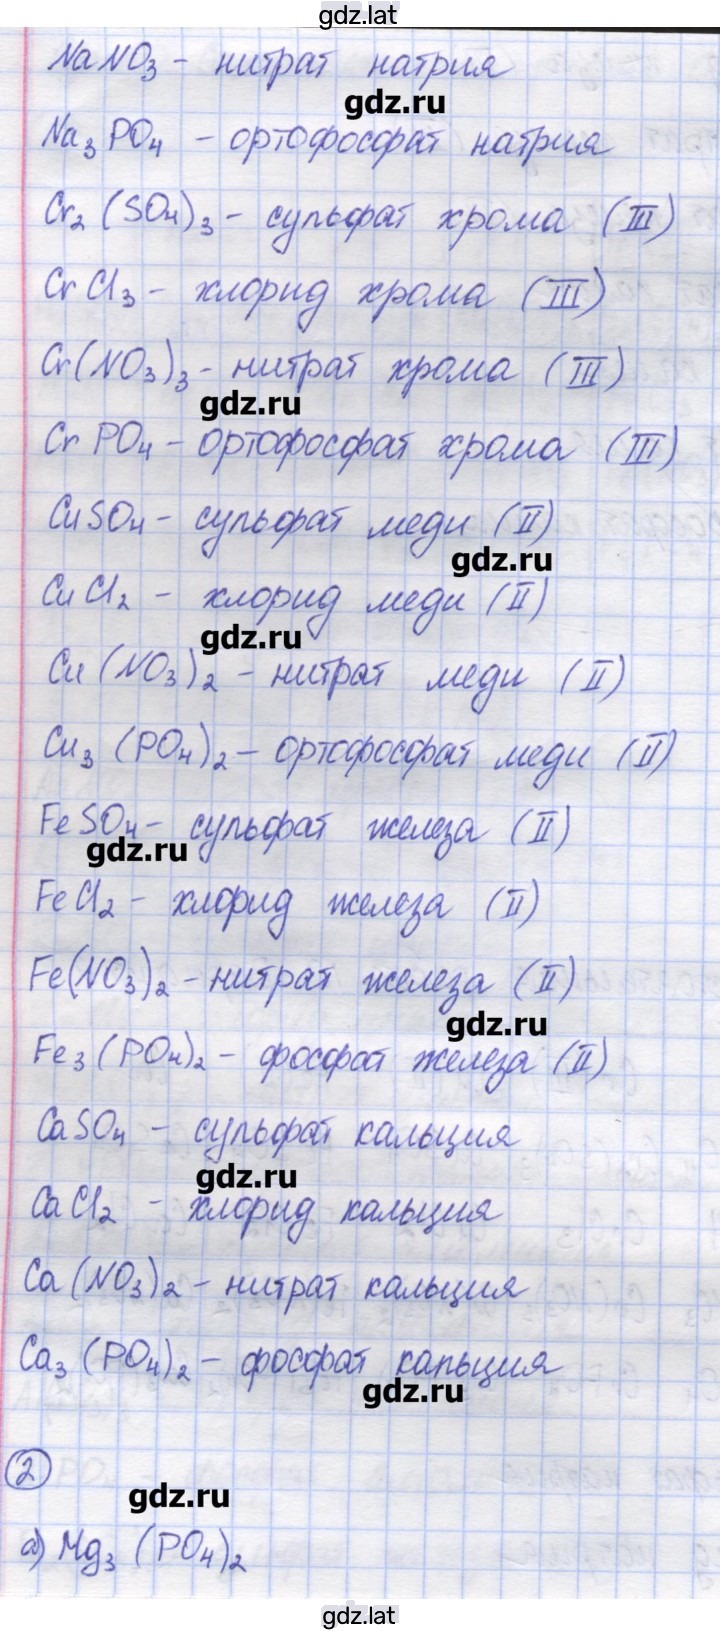 gdz.lat
NaNO3 - нитрат натрия
gdz.ru
Na3PO4 - ортофосфат натрия
Cr2(SO4)3 - сульфат хрома (III)
CrCl3 - хлорид хрома (III)
Cr(NO3)3 - нитрат хрома (III)
gdz.ru
CrPO4 - ортофосфат хрома (III)
CuSO4 - сульфат меди (II)
gdz.ru
CuCl2 - хлорид меди (II)
gdz.ru
Cu(NO3)2 - нитрат меди (II)
Cu3(PO4)2 - ортофосфат меди (II)
FeSO4 - сульфат железа (II)
gdz.ru
FeCl2 - хлорид железа (II)
Fe(NO3)2 - нитрат железа (II)
gdz.ru
Fe3(PO4)2 - фосфат железа (II)
CaSO4 - сульфат кальция
gdz.ru
CaCl2 - хлорид кальция
Ca(NO3)2 - нитрат кальция
Ca3(PO4)2 - фосфат кальция
gdz.ru
2
gdz.ru
а) Mg3(PO4)2
gdz.lat